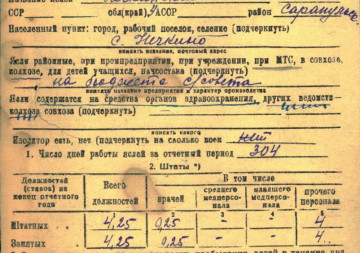 ССР обл(край) УАССР район Сарапульс
Населенный пункт: город, рабочий поселок, селение (подчеркнуть)
с. Нечкино
вписать название, почтовый адрес
Ясли районные, при промпредприятии, при учреждении, при МТС, в совхозе,
колхозе, для детей учащихся, начсостава (подчеркнуть)
на бюджете с/совета
вписать название предприятия и характер производства
Ясли содержатся на средства органов здравоохранения, других ведомств
колхоза совхоза (подчеркнуть)
вписать какого
Изолятор есть, нет (подчеркнуть) на сколько коек нет
1. Число дней работы яслей за отчетный период 304
2. Штаты *)
Должностей (ставок) на конец отчетного года
Всего должностей
В том числе
врачей
среднего медперсонала
младшего медперсонала
прочего персонала
2 3 4 5
Штатных 4,25 0,25 — — 4
Занятых 4,25 0,25 — — 4